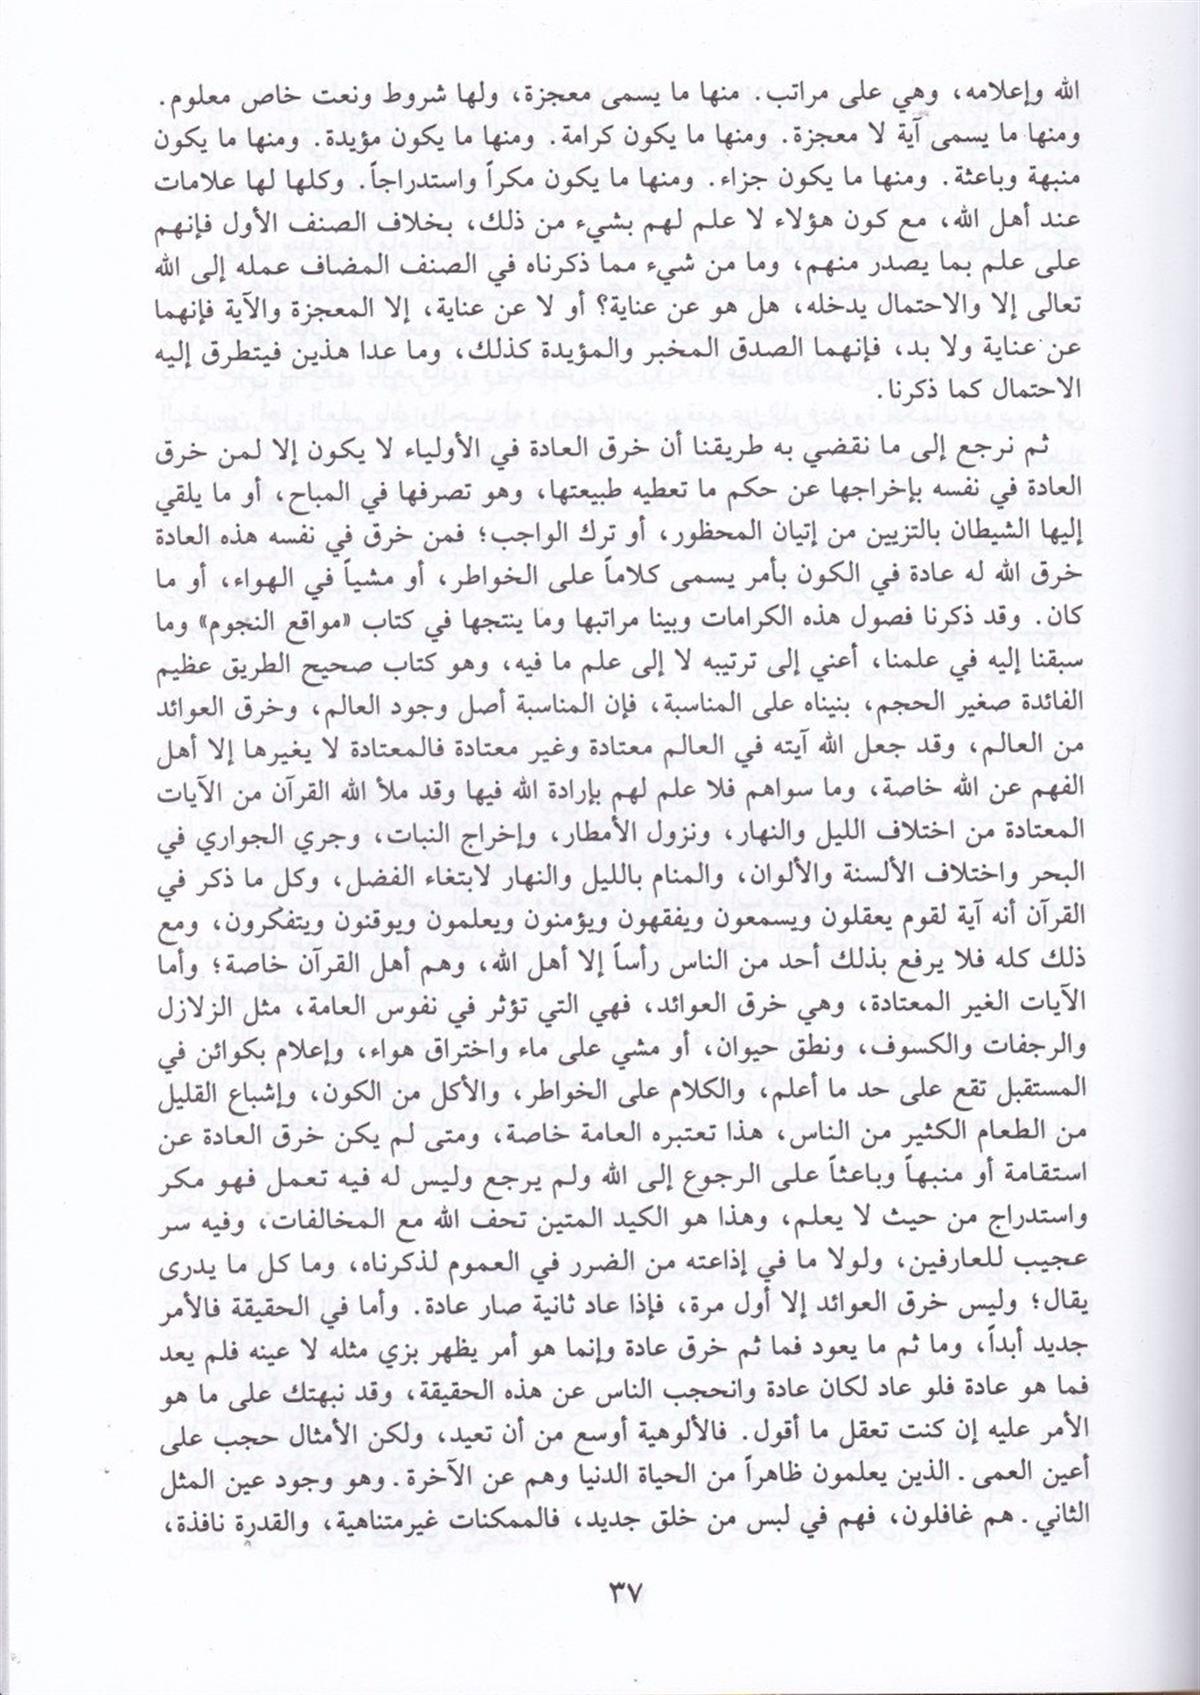 الله وإعلامه، وهي على مراتب. منها ما يسمى معجزة، ولها شروط ونعت خاص معلوم.
ومنها ما يسمى آية لا معجزة. ومنها ما يكون كرامة. ومنها ما يكون مؤيدة. ومنها ما يكون
منبهة وباعثة. ومنها ما يكون جزاء. ومنها ما يكون مكراً واستدراجاً. وكلها لها علامات
عند أهل الله، مع كون هؤلاء لا علم لهم بشيء من ذلك، بخلاف الصنف الأول فإنهم
على علم بما يصدر منهم، وما من شيء مما ذكرناه في الصنف المضاف عمله إلى الله
تعالى إلا والاحتمال يدخله، هل هو عن عناية؟ أو لا عن عناية، إلا المعجزة والآية فإنهما
عن عناية ولا بد، فإنهما الصدق المخبر والمؤيدة كذلك، وما عدا هذين فيتطرق إليه
الاحتمال كما ذكرنا.
ثم نرجع إلى ما نقضي به طريقنا أن خرق العادة في الأولياء لا يكون إلا لمن خرق
العادة في نفسه بإخراجها عن حكم ما تعطيه طبيعتها، وهو تصرفها في المباح، أو ما يلقي
إليها الشيطان بالتزيين من إتيان المحظور، أو ترك الواجب؛ فمن خرق في نفسه هذه العادة
خرق الله له عادة في الكون بأمر يسمى كلاماً على الخواطر، أو مشياً في الهواء، أو ما
كان. وقد ذكرنا فصول هذه الكرامات وبينا مراتبها وما ينتجها في كتاب «مواقع النجوم» وما
سبقنا إليه في علمنا، أعني إلى ترتيبه لا إلى علم ما فيه، وهو كتاب صحيح الطريق عظيم
الفائدة صغير الحجم، بنيناه على المناسبة، فإن المناسبة أصل وجود العالم، وخرق العوائد
من العالم، وقد جعل الله آيته في العالم معتادة وغير معتادة فالمعتادة لا يغيرها إلا أهل
الفهم عن الله خاصة، وما سواهم فلا علم لهم بإرادة الله فيها وقد ملأ الله القرآن من الآيات
المعتادة من اختلاف الليل والنهار، ونزول الأمطار، وإخراج النبات، وجري الجواري في
البحر واختلاف الألسنة والألوان، والمنام بالليل والنهار لابتغاء الفضل، وكل ما ذكر في
القرآن أنه آية لقوم يعقلون ويسمعون ويفقهون ويؤمنون ويعلمون ويوقنون ويتفكرون، ومع
ذلك كله فلا يرفع بذلك أحد من الناس رأساً إلا أهل الله، وهم أهل القرآن خاصة؛ وأما
الآيات الغير المعتادة، وهي خرق العوائد، فهي التي تؤثر في نفوس العامة، مثل الزلازل
والرجفات والكسوف، ونطق حيوان، أو مشي على ماء واختراق هواء، وإعلام بكوائن في
المستقبل تقع على حد ما أعلم، والكلام على الخواطر، والأكل من الكون، وإشباع القليل
من الطعام الكثير من الناس، هذا تعتبره العامة خاصة، ومتى لم يكن خرق العادة عن
استقامة أو منبهاً وباعثاً على الرجوع إلى الله ولم يرجع وليس له فيه تعمل فهو مكر
واستدراج من حيث لا يعلم، وهذا هو الكيد المتين تحف الله مع المخالفات، وفيه سر
عجيب للعارفين، ولولا ما في إذاعته من الضرر في العموم لذكرناه، وما كل ما يدرى
يقال؛ وليس خرق العوائد إلا أول مرة، فإذا عاد ثانية صار عادة. وأما في الحقيقة فالأمر
جديد أبداً، وما ثم ما يعود فما ثم خرق عادة وإنما هو أمر يظهر بزي مثله لا عينه فلم يعد
فما هو عادة فلو عاد لكان عادة وانحجب الناس عن هذه الحقيقة، وقد نبهتك على ما هو
الأمر عليه إن كنت تعقل ما أقول. فالألوهية أوسع من أن تعيد، ولكن الأمثال حجب على
أعين العمى. الذين يعلمون ظاهراً من الحياة الدنيا وهم عن الآخرة. وهو وجود عين المثل
الثاني. هم غافلون، فهم في لبس من خلق جديد، فالممكنات غيرمتناهية، والقدرة نافذة،
٣٧